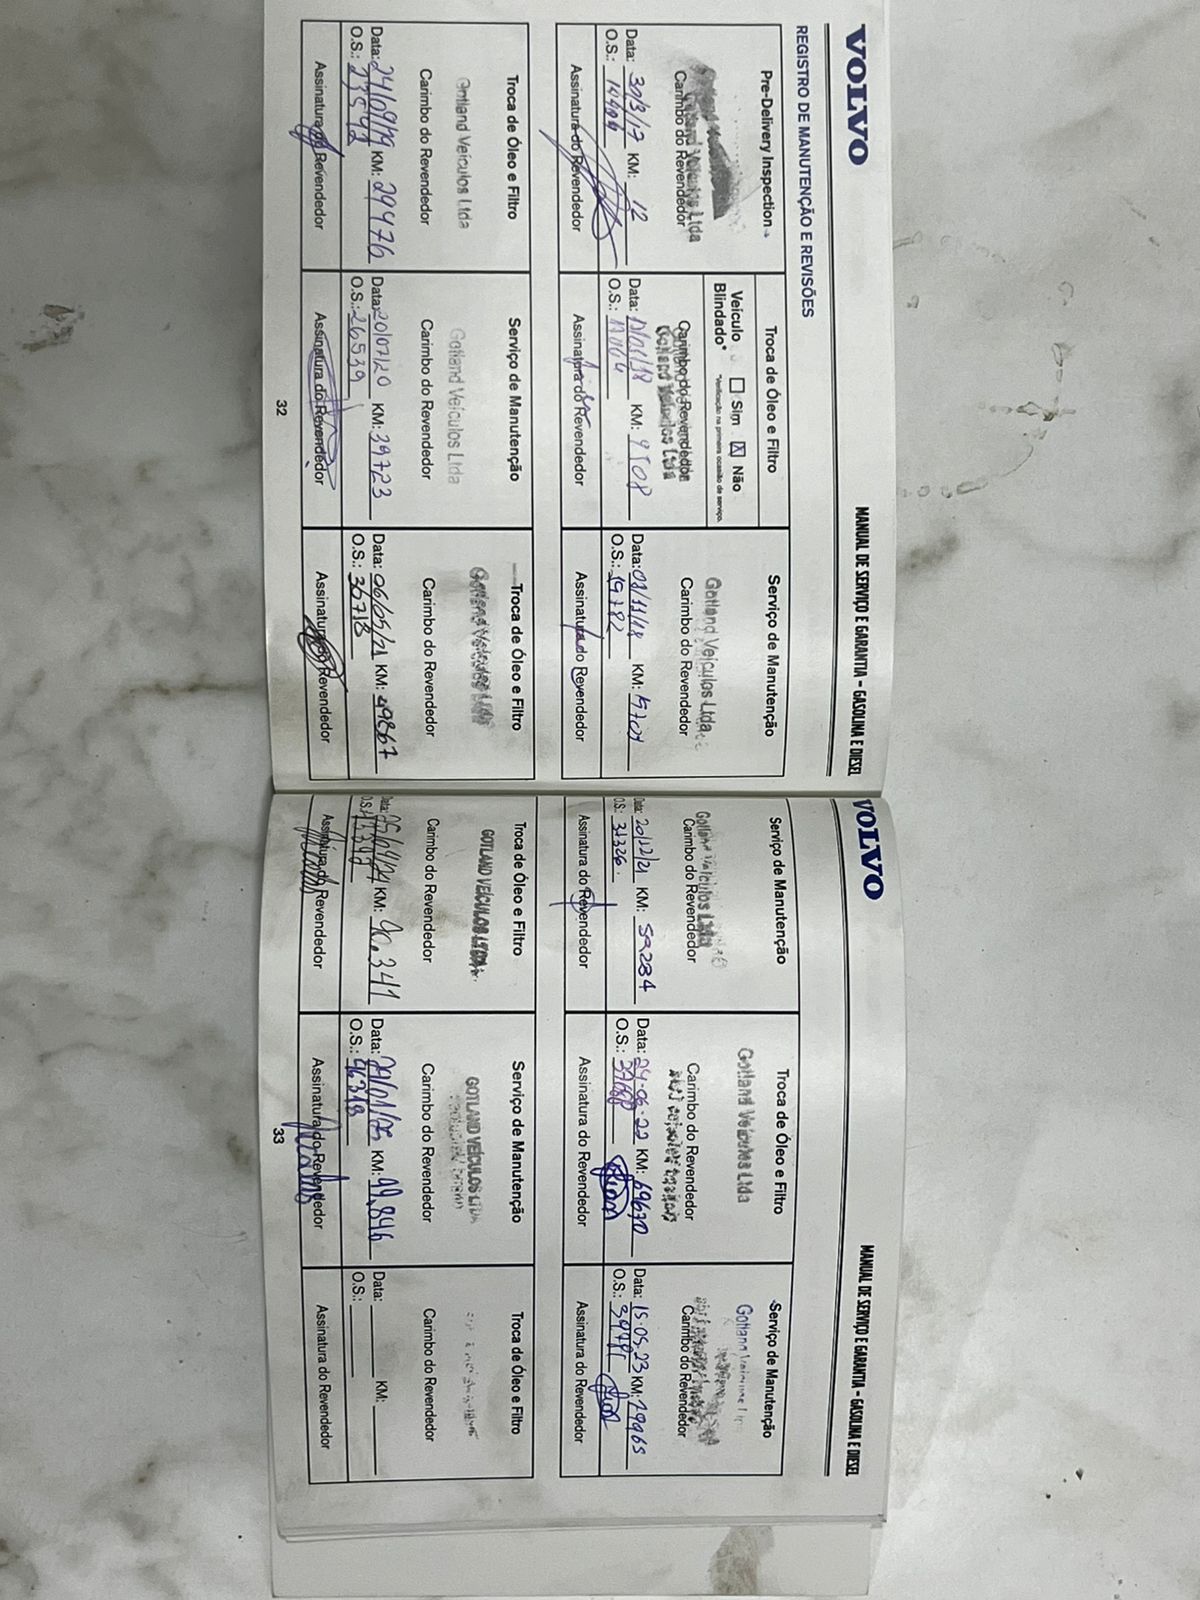 VOLVO
MANUAL DE SERVIÇO E GARANTIA – GASOLINA E DIESEL
REGISTRO DE MANUTENÇÃO E REVISÕES
Pre-Delivery Inspection
Carimbo do Revendedor
Data: 30/3/17 KM: 12
O.S.:
Assinatura do Revendedor
Troca de Óleo e Filtro
Veículo Blindado* Sim X Não
*Verificação na primeira ocasião de serviço.
Carimbo do Revendedor
Gotland Veículos Ltda
Data: KM:
O.S.:
Assinatura do Revendedor
Serviço de Manutenção
Gotland Veículos Ltda
Carimbo do Revendedor
Data: KM:
O.S.: 19782
Assinatura do Revendedor
Troca de Óleo e Filtro
Gotland Veículos Ltda
Carimbo do Revendedor
Data: 24/09/19 KM: 29476
O.S.: 23592
Assinatura do Revendedor
Serviço de Manutenção
Gotland Veículos Ltda
Carimbo do Revendedor
Data: 20/07/20 KM: 39723
O.S.: 26539
Assinatura do Revendedor
Troca de Óleo e Filtro
Gotland Veículos Ltda
Carimbo do Revendedor
Data: 06/05/21 KM: 49867
O.S.:
Assinatura do Revendedor
32
VOLVO
MANUAL DE SERVIÇO E GARANTIA – GASOLINA E DIESEL
Serviço de Manutenção
Gotland Veículos Ltda
Carimbo do Revendedor
Data: 20/12/21 KM: 59284
O.S.: 37326
Assinatura do Revendedor
Troca de Óleo e Filtro
Gotland Veículos Ltda
Carimbo do Revendedor
Data: 24-06-22 KM: 69670
O.S.:
Assinatura do Revendedor
Serviço de Manutenção
Gotland
Carimbo do Revendedor
Data: 15.05.23 KM: 79965
O.S.:
Assinatura do Revendedor
Troca de Óleo e Filtro
GOTLAND VEÍCULOS LTDA
Carimbo do Revendedor
Data: KM: 90.341
O.S.:
Assinatura do Revendedor
Serviço de Manutenção
GOTLAND VEÍCULOS LTDA
Carimbo do Revendedor
Data: KM: 99.846
O.S.:
Assinatura do Revendedor
Troca de Óleo e Filtro
Carimbo do Revendedor
Data: KM:
O.S.:
Assinatura do Revendedor
33